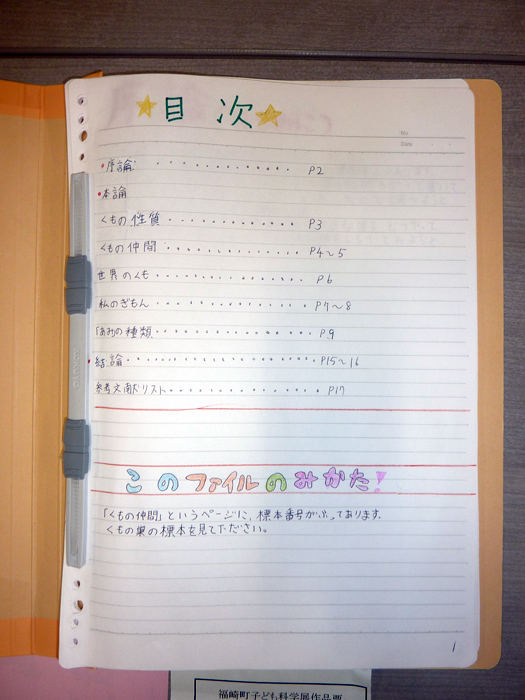 目 次
No.
Date
・序論 ・・・・・・・・・・・・ P2
・本論
くもの性質 ・・・・・・・・・・・・ P3
くもの仲間 ・・・・・・・・・・・・ P4〜5
世界のくも ・・・・・・・・・・・・ P6
私のぎもん ・・・・・・・・・・・・ P7〜8
「あみの種類 ・・・・・・・・・・・・ P9
・結論 ・・・・・・・・・・・・ P15〜16
参考文献リスト ・・・・・・・・・・・・ P17
このファイルのみかた!
「くもの仲間」というページに、標本番号がふってあります。
くもの巣の標本を見て下ださい。
1
福崎町子ども科学展作品票